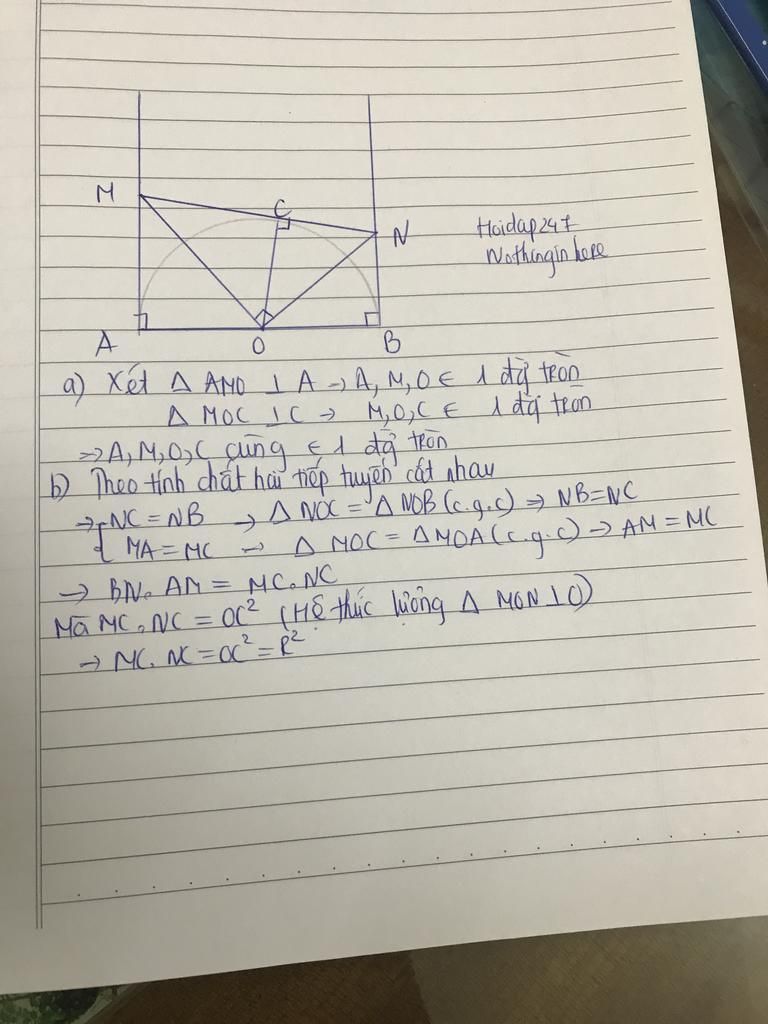 M
C
N
Hoidap247
Nothinginhere
A
O
B
a) Xét Δ AMO ⊥ A → A, M, O ∈ 1 đg tròn
Δ MOC ⊥ C → M, O, C ∈ 1 đg tròn
⇒ A, M, O, C cùng ∈ 1 đg tròn
b) Theo tính chất hai tiếp tuyến cắt nhau
→ { NC = NB → Δ NOC = Δ NOB (c.g.c) ⇒ NB = NC
MA = MC → Δ MOC = Δ MOA (c.g.c) → AM = MC
→ BN. AM = MC. NC
Mà MC. NC = OC² (Hệ thức lượng Δ MON ⊥ O)
→ MC. NC = OC² = R²